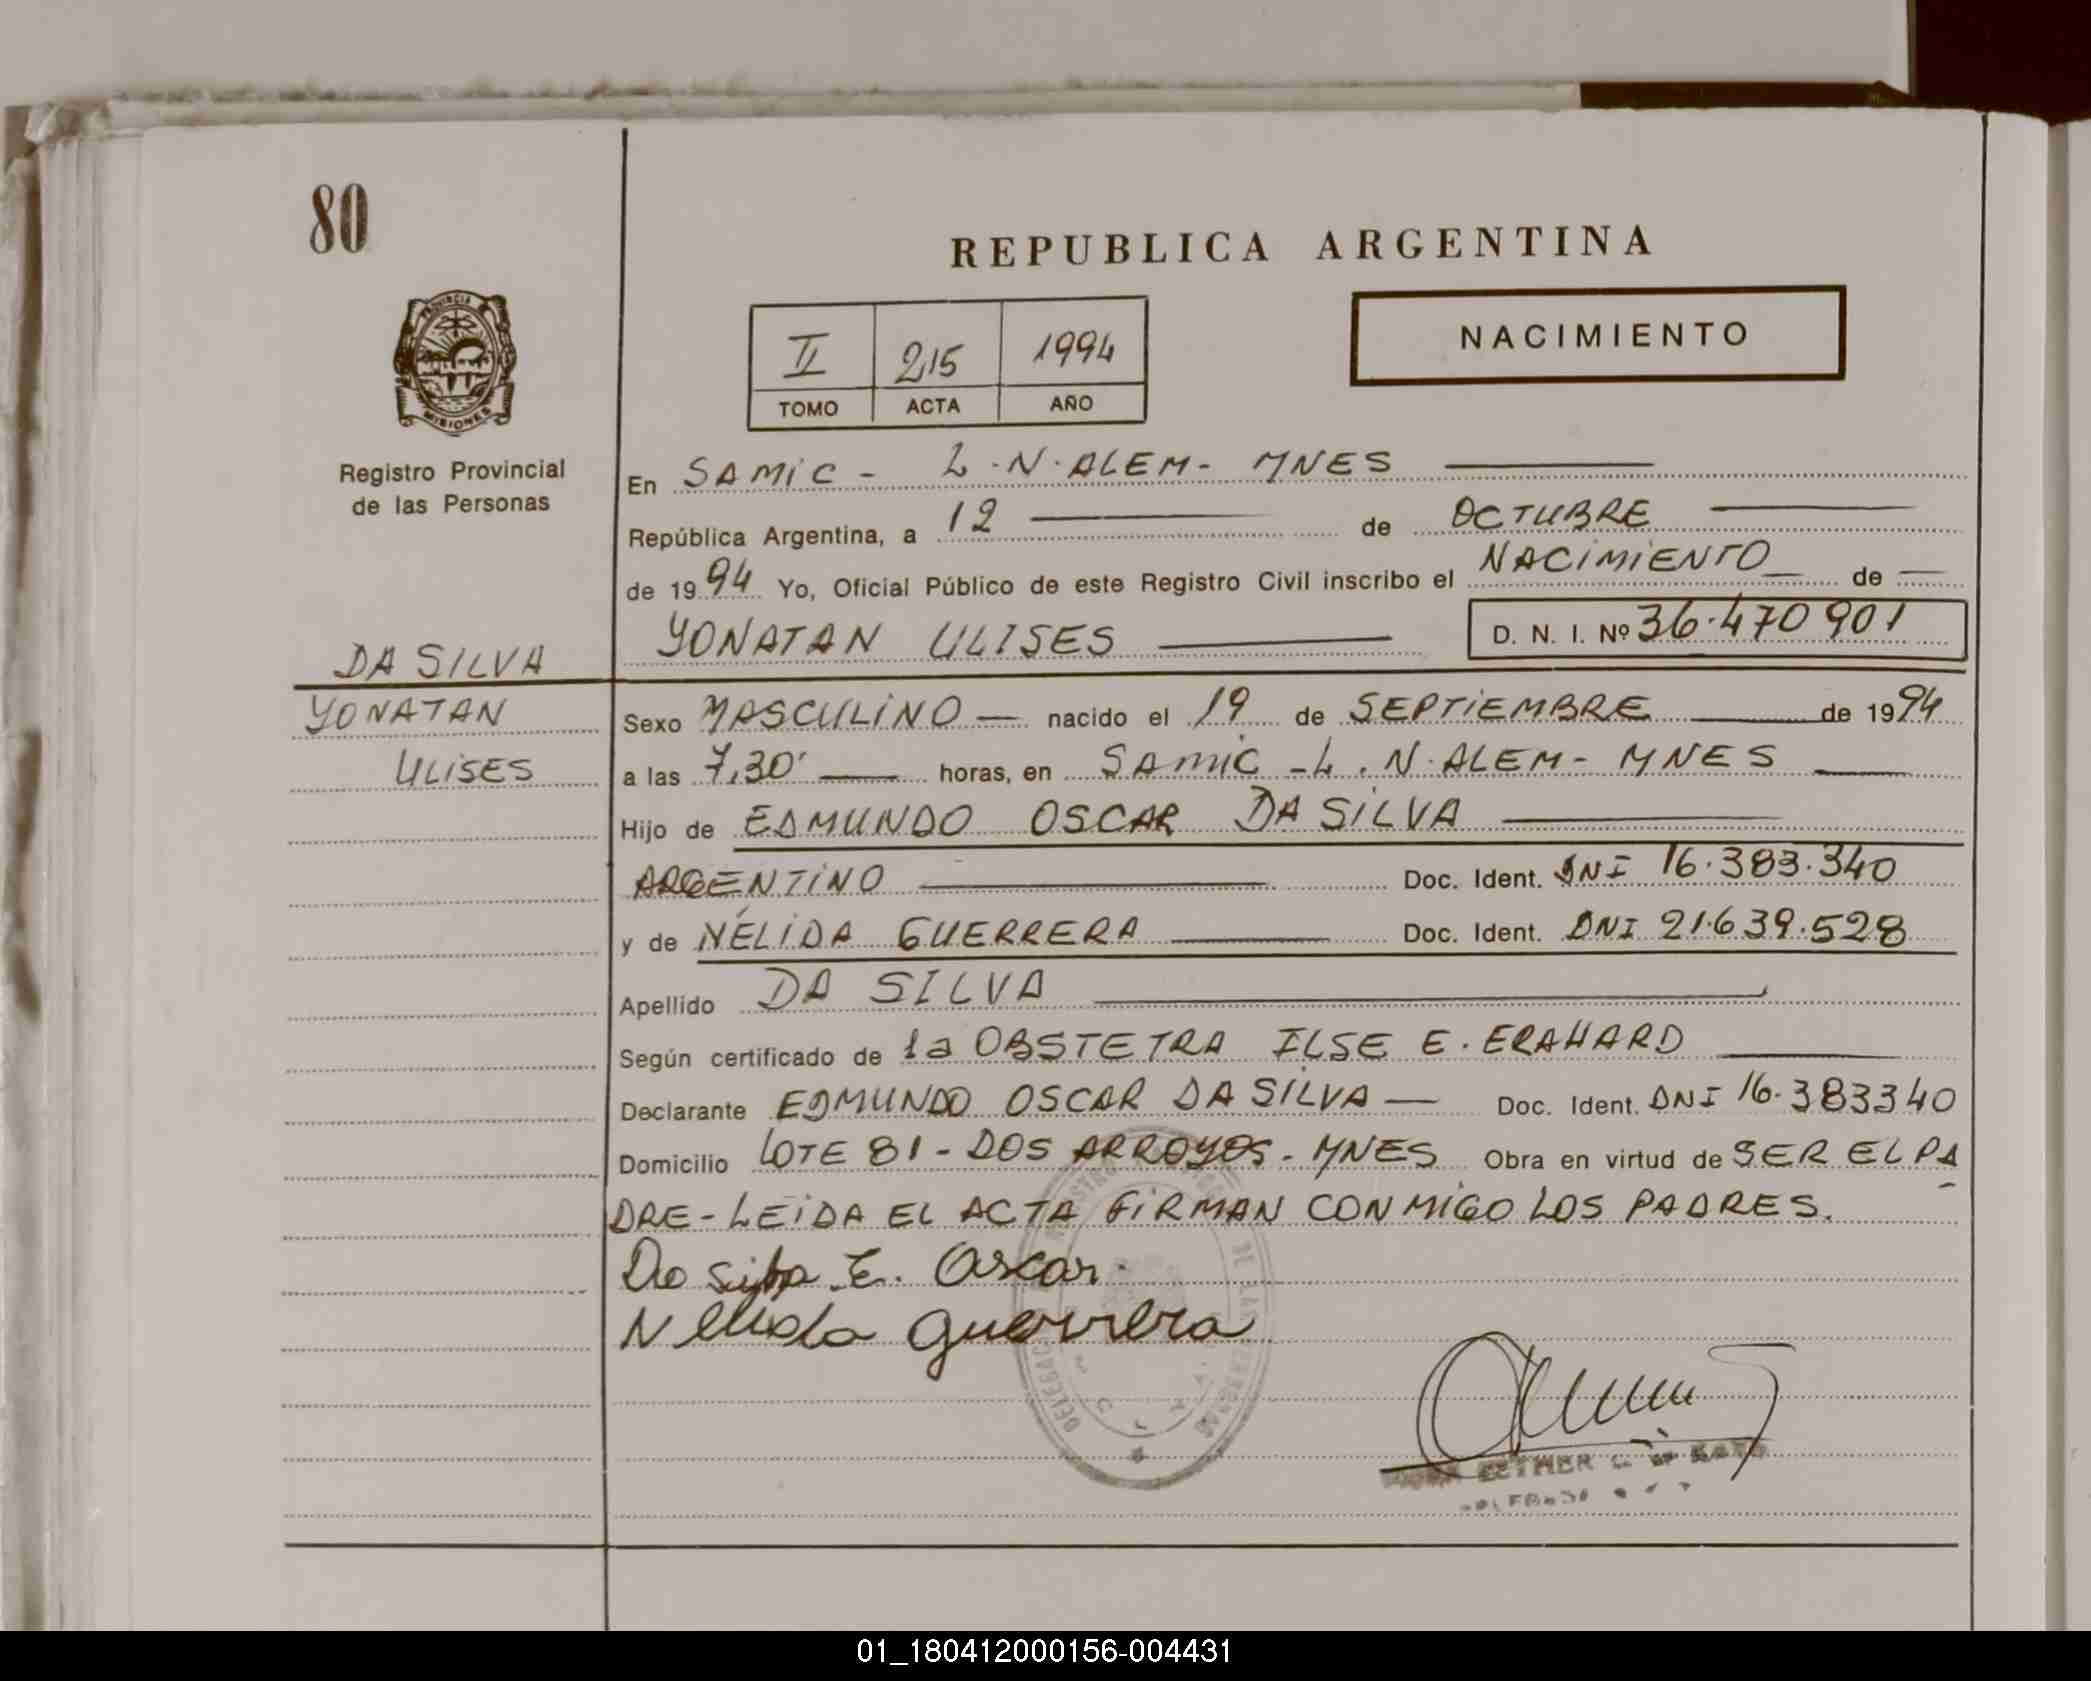 80
REPUBLICA ARGENTINA
PROVINCIA
MISIONES
Registro Provincial
de las Personas
II 215 1994
TOMO ACTA AÑO
NACIMIENTO
En SAMIC - L.N.ALEM- MNES
República Argentina, a 12 de OCTUBRE
de 1994 Yo, Oficial Público de este Registro Civil inscribo el NACIMIENTO de
YONATAN ULISES D. N. I. Nº 36.470901
DA SILVA
YONATAN
ULISES
Sexo MASCULINO nacido el 19 de SEPTIEMBRE de 1994
a las 7,30' horas, en SAMIC - L.N.ALEM- MNES
Hijo de EDMUNDO OSCAR DA SILVA
ARGENTINO Doc. Ident. DNI 16.383.340
y de NÉLIDA GUERRERA Doc. Ident. DNI 21.639.528
Apellido DA SILVA
Según certificado de la OBSTETRA ILSE E. ERAHARD
Declarante EDMUNDO OSCAR DA SILVA Doc. Ident. DNI 16.383340
Domicilio LOTE 81 - DOS ARROYOS - MNES Obra en virtud de SER EL PA
DRE - LEIDA EL ACTA FIRMAN CONMIGO LOS PADRES.
Da Silva E. Oscar.
Nelida Guerrera
ESTHER
01_180412000156-004431